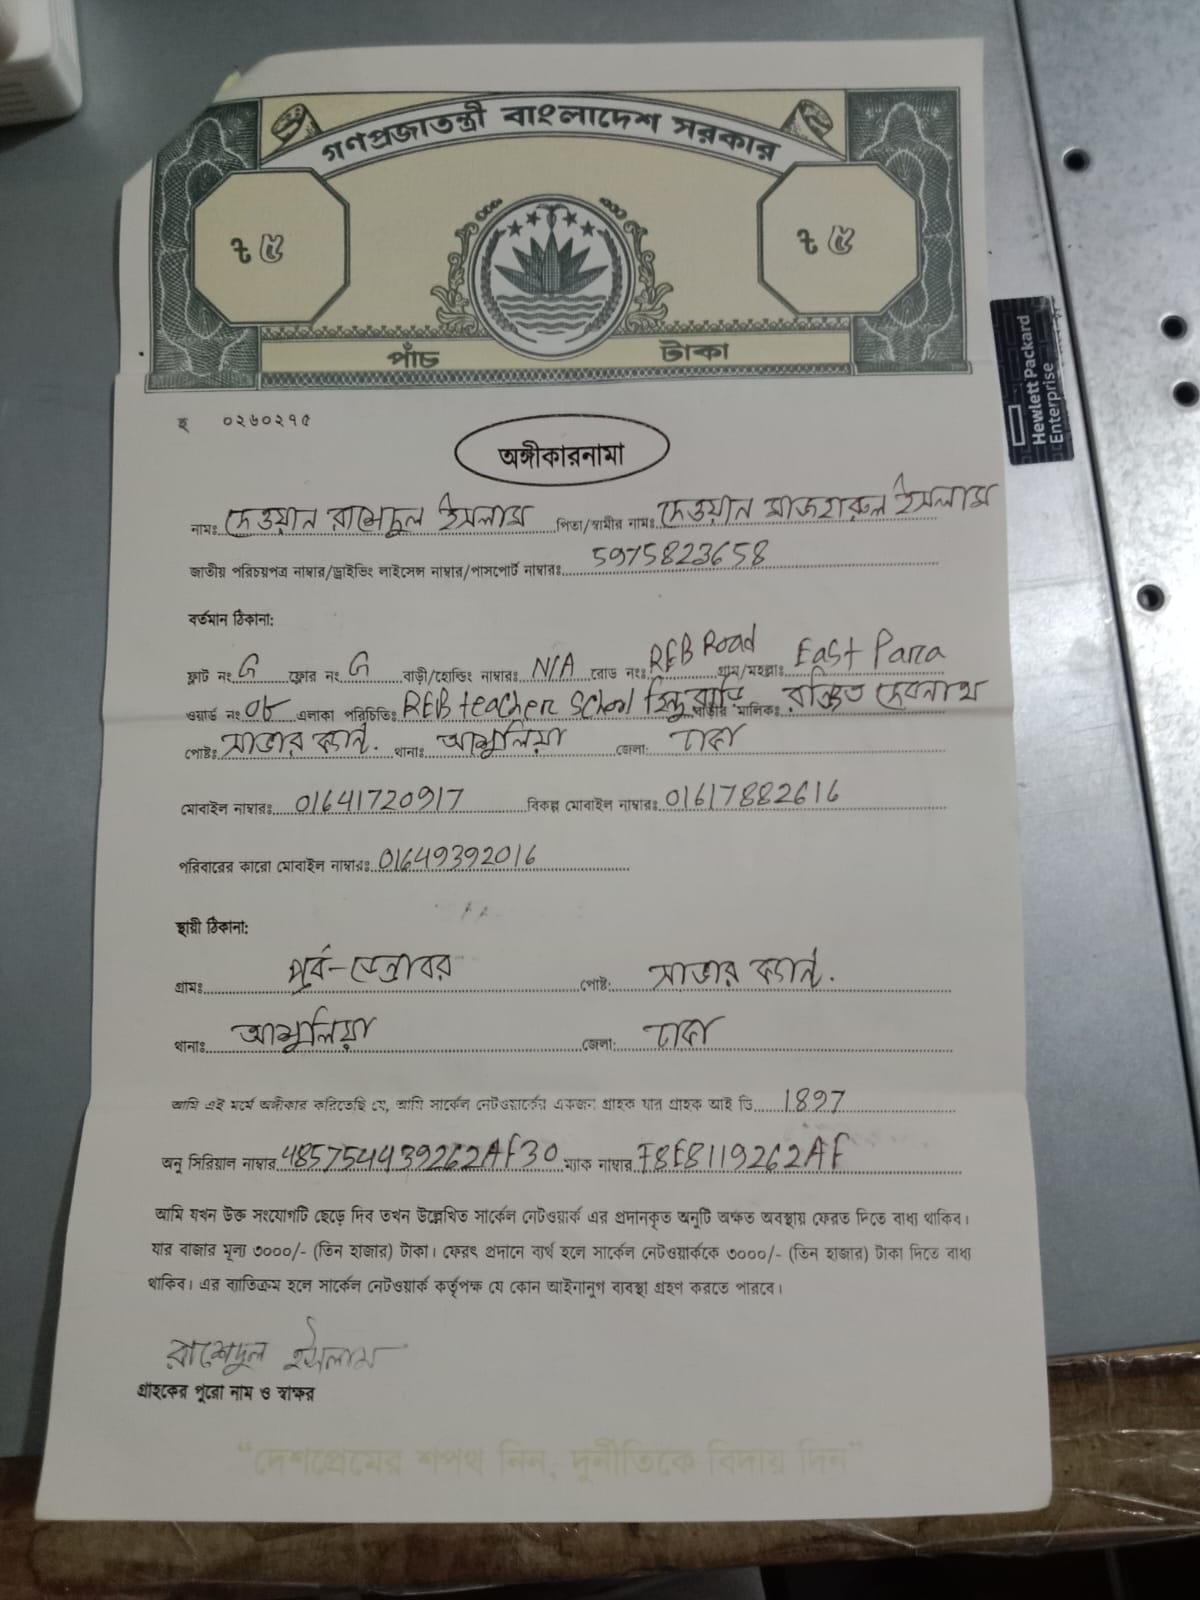 গণপ্রজাতন্ত্রী বাংলাদেশ সরকার
৳ ৫ ৳ ৫
পাঁচ টাকা
Hewlett Packard
Enterprise
হ ০২৬০২৭৫
অঙ্গীকারনামা
নামঃ দেওয়ান রাশেদুল ইসলাম পিতা/স্বামীর নামঃ দেওয়ান মাজহারুল ইসলাম
জাতীয় পরিচয়পত্র নাম্বার/ড্রাইভিং লাইসেন্স নাম্বার/পাসপোর্ট নাম্বারঃ 5975823658
বর্তমান ঠিকানা:
ফ্লাট নং G ফ্লোর নং G বাড়ী/হোল্ডিং নাম্বারঃ N/A রোড নং: REB Road গ্রাম/মহল্লাঃ East Para
ওয়ার্ড নং: এলাকা পরিচিতিঃ REB teacher School হিন্দু বাড়ি বাড়ীর মালিক: রঞ্জিত দেবনাথ
পোষ্ট: সাভার ক্যান্ট. থানাঃ আশুলিয়া জেলা: ঢাকা
মোবাইল নাম্বারঃ 01641720917 বিকল্প মোবাইল নাম্বারঃ 01617882616
পরিবারের কারো মোবাইল নাম্বারঃ 01649392016
স্থায়ী ঠিকানা:
গ্রামঃ পূর্ব-ডেন্ডাবর পোষ্ট: সাভার ক্যান্ট.
থানাঃ আশুলিয়া জেলা: ঢাকা
আমি এই মর্মে অঙ্গীকার করিতেছি যে, আমি সার্কেল নেটওয়ার্কের একজন গ্রাহক যার গ্রাহক আই ডি 1897
অনু সিরিয়াল নাম্বার 4857544439262AF30 ম্যাক নাম্বার F8E8119262AF
আমি যখন উক্ত সংযোগটি ছেড়ে দিব তখন উল্লেখিত সার্কেল নেটওয়ার্ক এর প্রদানকৃত অনুটি অক্ষত অবস্থায় ফেরত দিতে বাধ্য থাকিব।
যার বাজার মূল্য ৩০০০/- (তিন হাজার) টাকা। ফেরৎ প্রদানে ব্যর্থ হলে সার্কেল নেটওয়ার্ককে ৩০০০/- (তিন হাজার) টাকা দিতে বাধ্য
থাকিব। এর ব্যতিক্রম হলে সার্কেল নেটওয়ার্ক কর্তৃপক্ষ যে কোন আইনানুগ ব্যবস্থা গ্রহণ করতে পারবে।
রাশেদুল ইসলাম
গ্রাহকের পুরো নাম ও স্বাক্ষর
"দেশপ্রেমের শপথ নিন, দুর্নীতিকে বিদায় দিন"